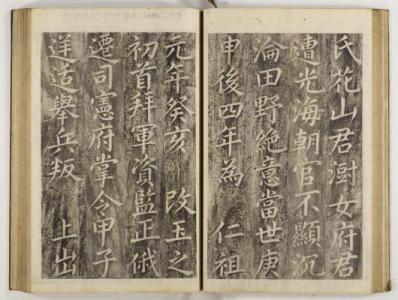 氏花山君澍女府君
遭光海朝官不顯沉
淪田野絶意當世庚
申後四年為 仁祖
元年癸亥 改玉之
初首拜軍資監正俄
遷司憲府掌令甲子
逆适擧兵叛 上出